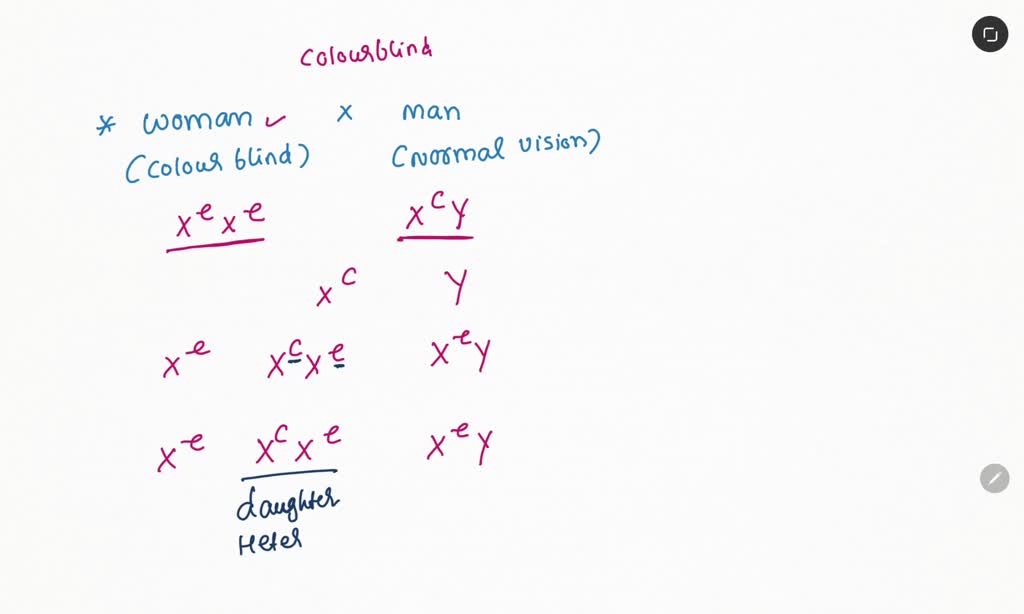 colourblind
* woman ✓ x man
(colour blind) (normal vision)
XᵉXᵉ XᶜY
Xᶜ Y
Xᵉ XᶜXᵉ XᵉY
Xᵉ XᶜXᵉ XᵉY
daughter
Heter